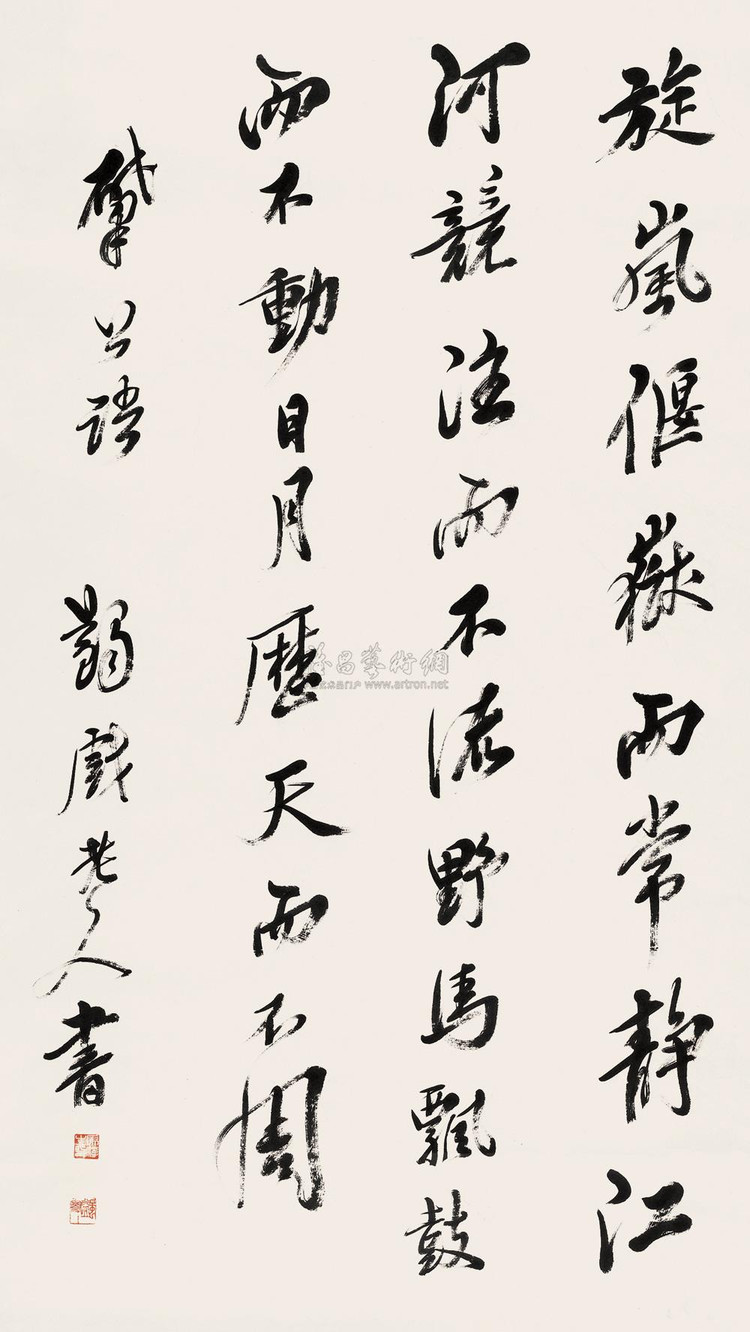 旋嵐偃嶽而常靜江
河競注而不流野馬飄鼓
而不動日月歷天而不周
肇公語
蠲戲老人書
雅昌藝術網
www.artron.net